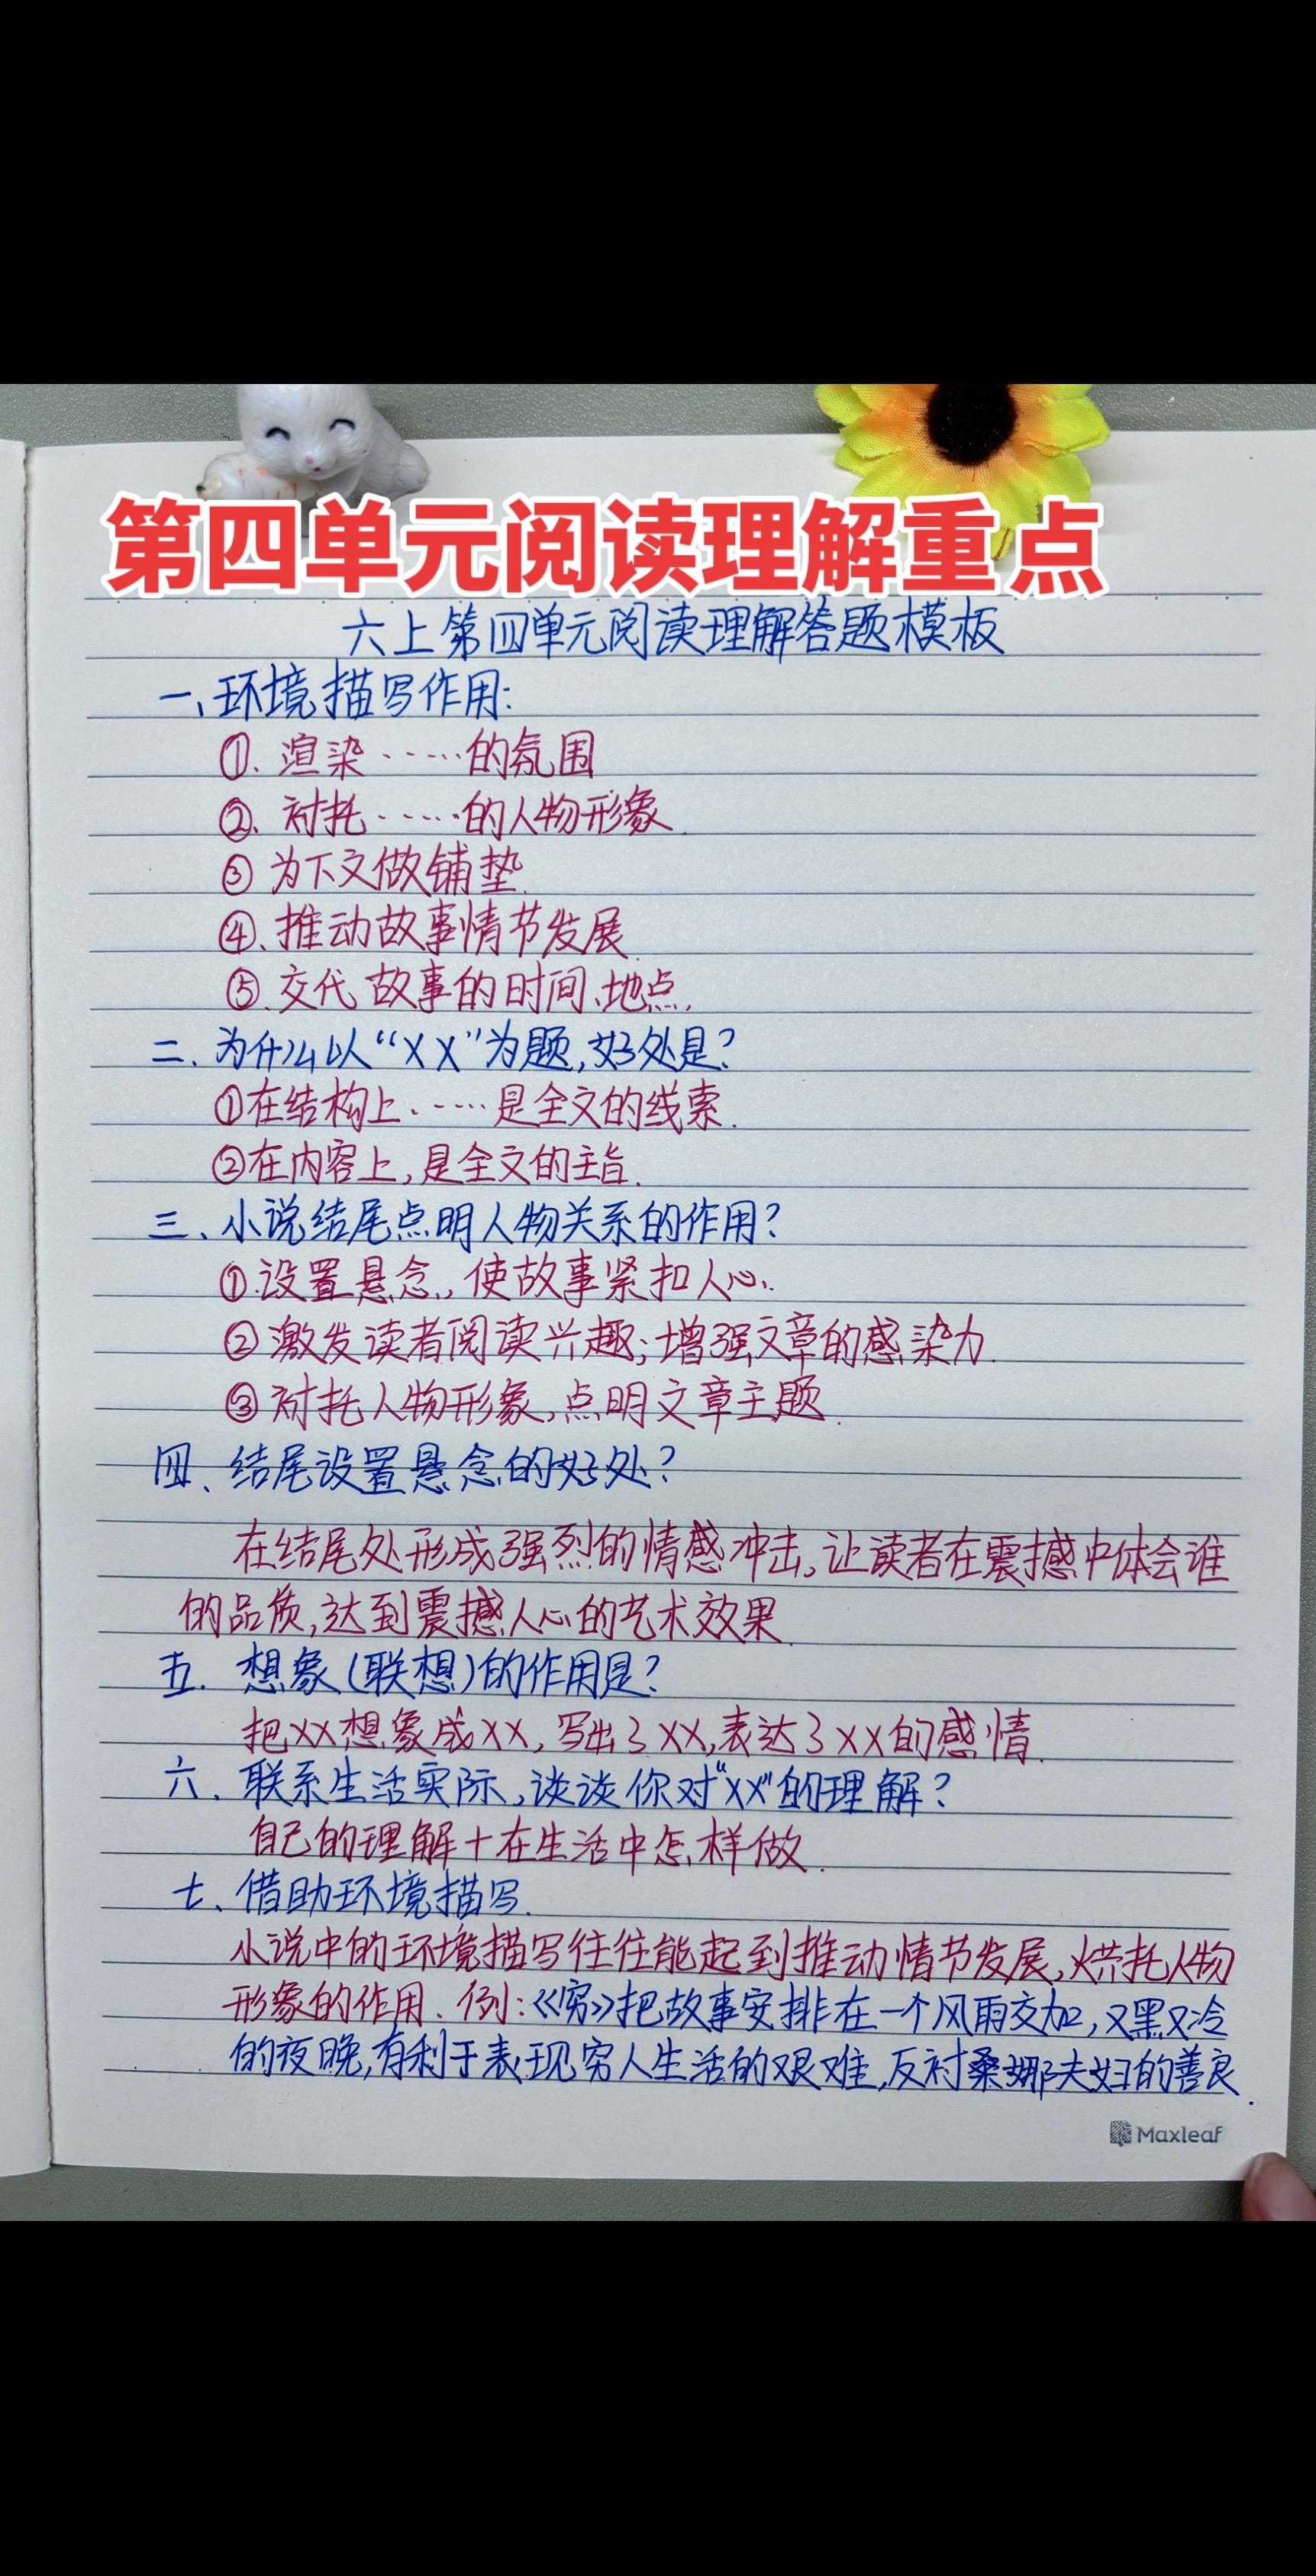 第四单元阅读理解重点
六上第四单元阅读理解答题模板
一、环境描写作用:
①. 渲染······的氛围
②. 衬托······的人物形象.
③ 为下文做铺垫.
④、推动故事情节发展.
⑤. 交代故事的时间、地点.
二、为什么以“XX”为题,好处是?
①在结构上······是全文的线索.
②在内容上,是全文的主旨.
三、小说结尾点明人物关系的作用?
①.设置悬念,,使故事紧扣人心.
②激发读者阅读兴趣;增强文章的感染力.
③衬托人物形象,点明文章主题.
四、结尾设置悬念的好处?
在结尾处形成强烈的情感冲击,让读者在震撼中体会谁
的品质,达到震撼人心的艺术效果.
五. 想象(联想)的作用是?
把XX想象成XX,写出了XX,表达了XX的感情.
六、联系生活实际,谈谈你对“XX”的理解?
自己的理解+在生活中怎样做.
七、借助环境描写.
小说中的环境描写往往能起到推动情节发展,烘托人物
形象的作用.例:《穷》把故事安排在一个风雨交加,又黑又冷
的夜晚,有利于表现穷人生活的艰难,反衬桑娜夫妇的善良.
Maxleaf